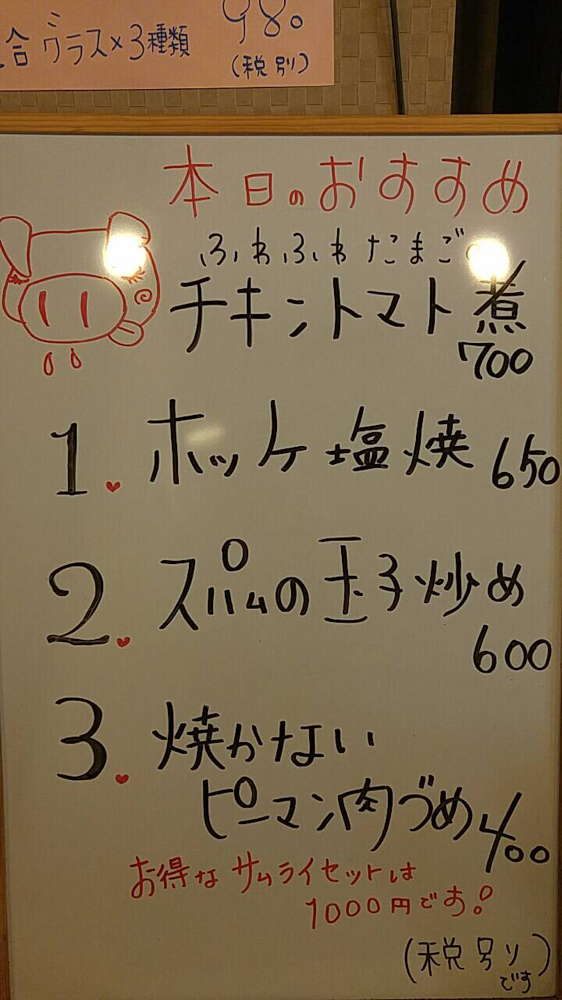 合 グラス×3種類
980
(税別)
本日のおすすめ
ふわふわたまごの
チキントマト煮
700
1. ホッケ塩焼 650
2. スパムの玉子炒め
600
3. 焼かない
ピーマン肉づめ 400
お得なサムライセットは
1000円です。
(税別)
です